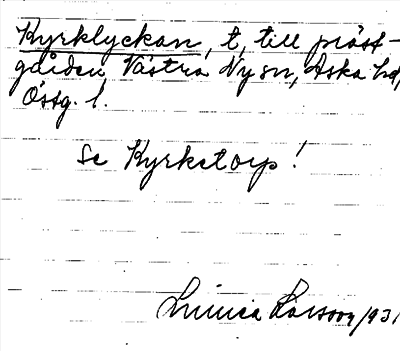 Kyrklyckan, t, till präst-
gården, Västra Ny sn, Aska hd,
Östg. l.
Se Kyrketorp!
Linnea Larsson 1931